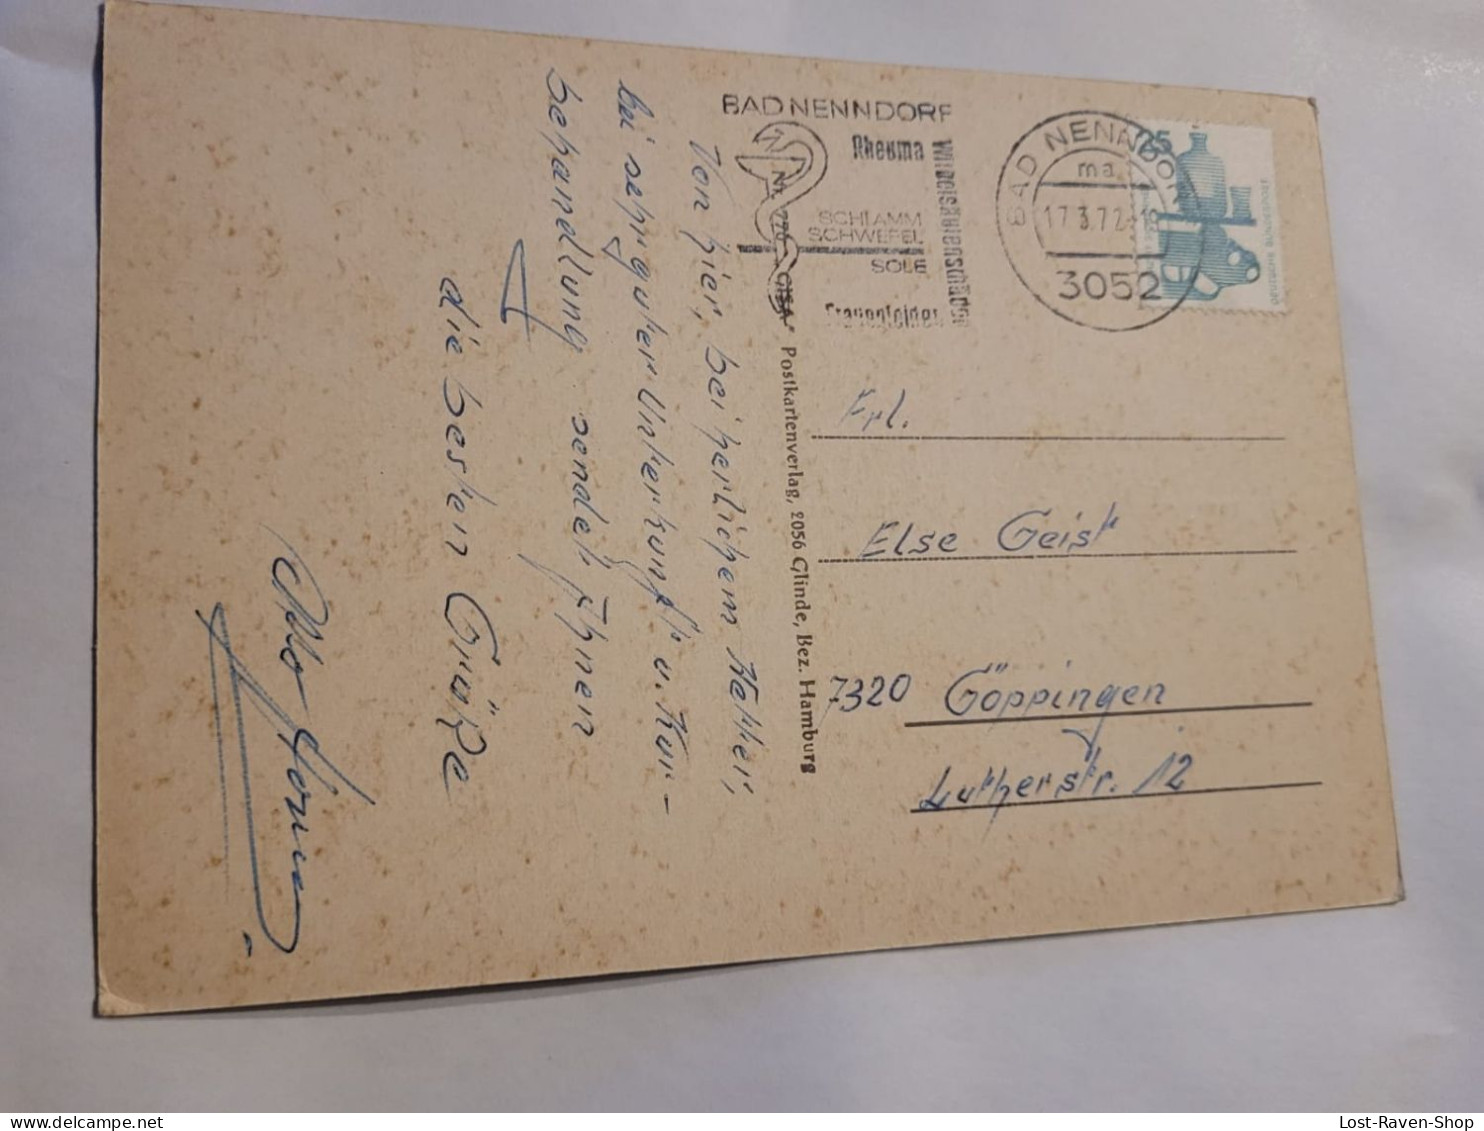 Von hier, bei herlichem Wetter,
bei sehr guter Unterkunft u. Kur-
behandlung sendet Ihnen
die besten Grüße
Otto
BAD NENNDORF
Rheuma
Wirbelsäulenschäden
SCHLAMM
SCHWEFEL
SOLE
Frauenleiden
BAD NENNDORF
ma
17.3.72-18
3052
25
DEUTSCHE BUNDESPOST
Nr. 770 „GISA“ Postkartenverlag, 2056 Glinde, Bez. Hamburg
Frl.
Else Geist
7320 Göppingen
Lutherstr. 12
Lost-Raven-Shop